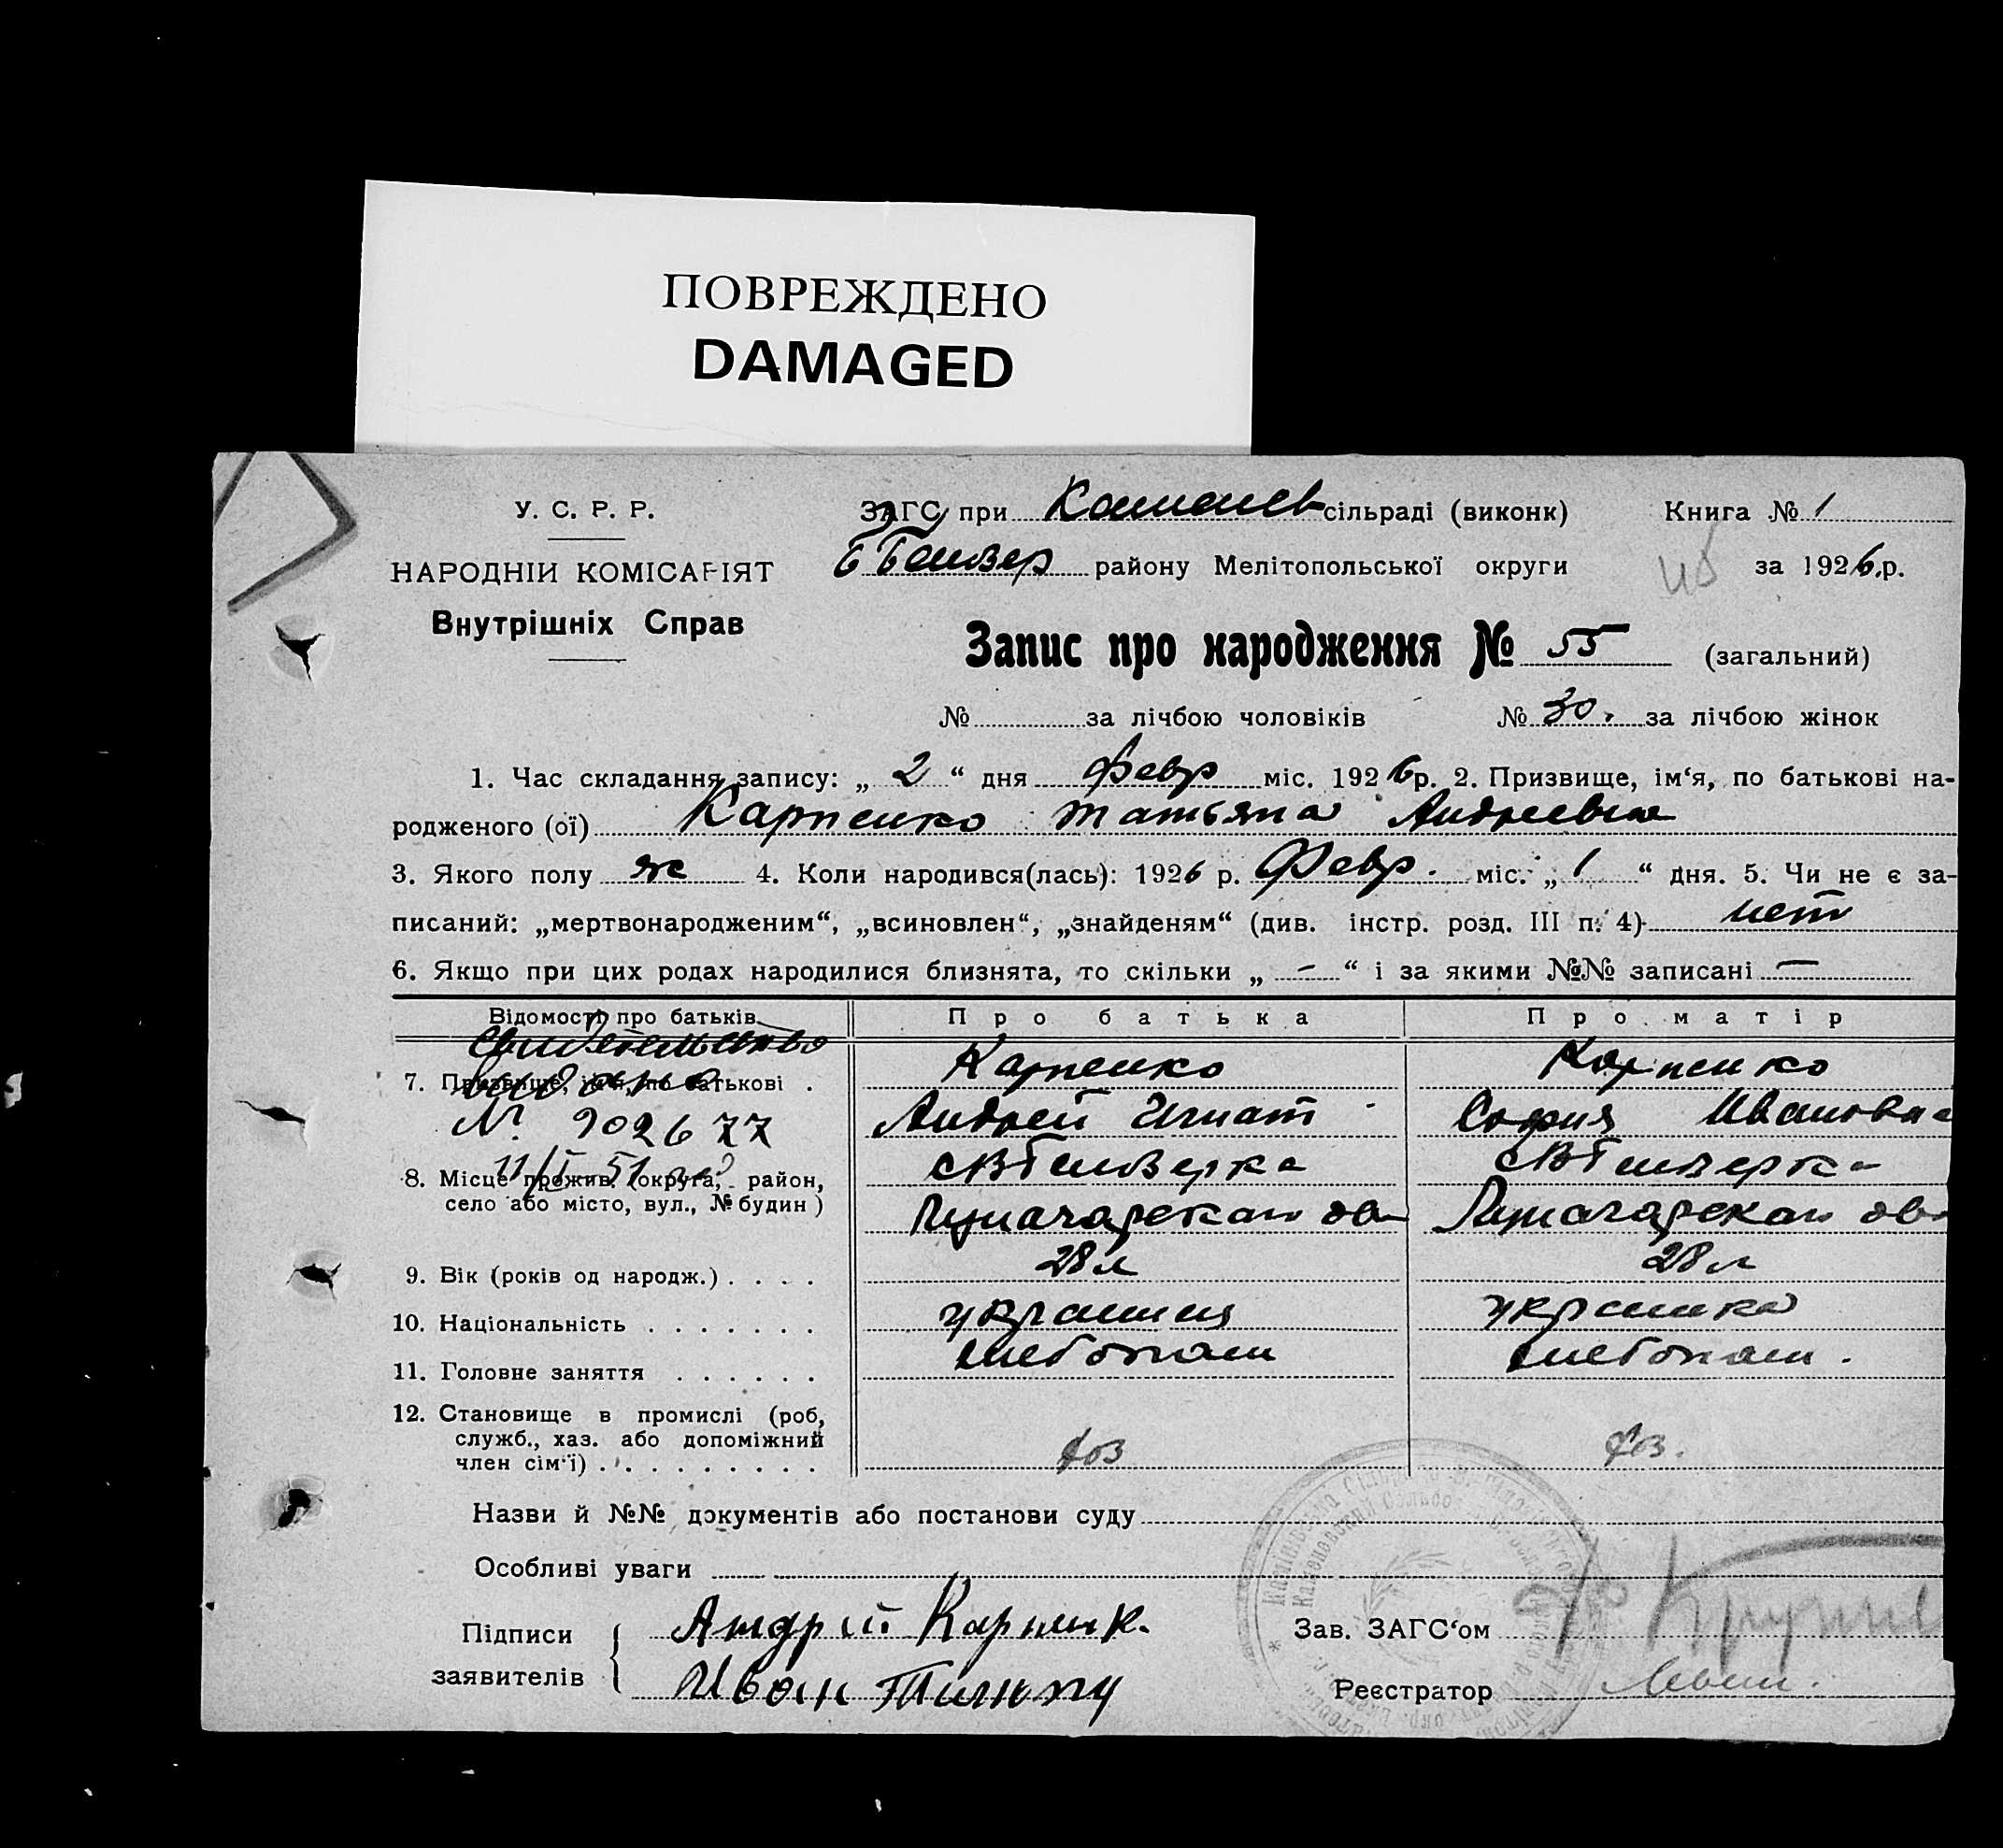 ПОВРЕЖДЕНО
DAMAGED
У. С. Р. Р.
НАРОДНІЙ КОМІСАРІЯТ
Внутрішніх Справ
ЗАГС при Каменев сільраді (виконк) Книга № 1
району Мелітопольської округи за 1926.р.
Запис про народження № 55 (загальний)
№ за лічбою чоловіків № 30. за лічбою жінок
1. Час складання запису: „ 2 “ дня февр міс. 1926р. 2. Призвище, ім‘я, по батькові на-
родженого (ої) Карпенко татьяна Андреевна
3. Якого полу ж 4. Коли народився(лась): 1926 р. Февр. міс. „ 1 “ дня. 5. Чи не є за-
писаний: „мертвонародженим“, „всиновлен“, „знайденям“ (див. інстр. розд. III п. 4) нет
6. Якщо при цих родах народилися близнята, то скільки „ - “ і за якими №№ записані —
Відомості про батьків Про батька Про матір
Свидетельство
выдано
7. Призвище, ім‘я, по батькові . Карпенко Карпенко
№ 902677 Андрей Игнат София Ивановна
11/I 51
8. Місце прожив. (округа, район,
село або місто, вул., № будин)
9. Вік (років од народж.) . . . . 28 л 28 л
10. Національність . . . . . . . украинец украинка
11. Головне заняття . . . . . . хлебопаш хлебопаш.
12. Становище в промислі (роб,
служб., хаз. або допоміжний
член сім‘ї) . . . . . . . . . хоз хоз.
Назви й №№ документів або постанови суду
Особливі уваги
Підписи Андрій Карпенк.
заявителів Иван
Зав. ЗАГС‘ом
Реєстратор